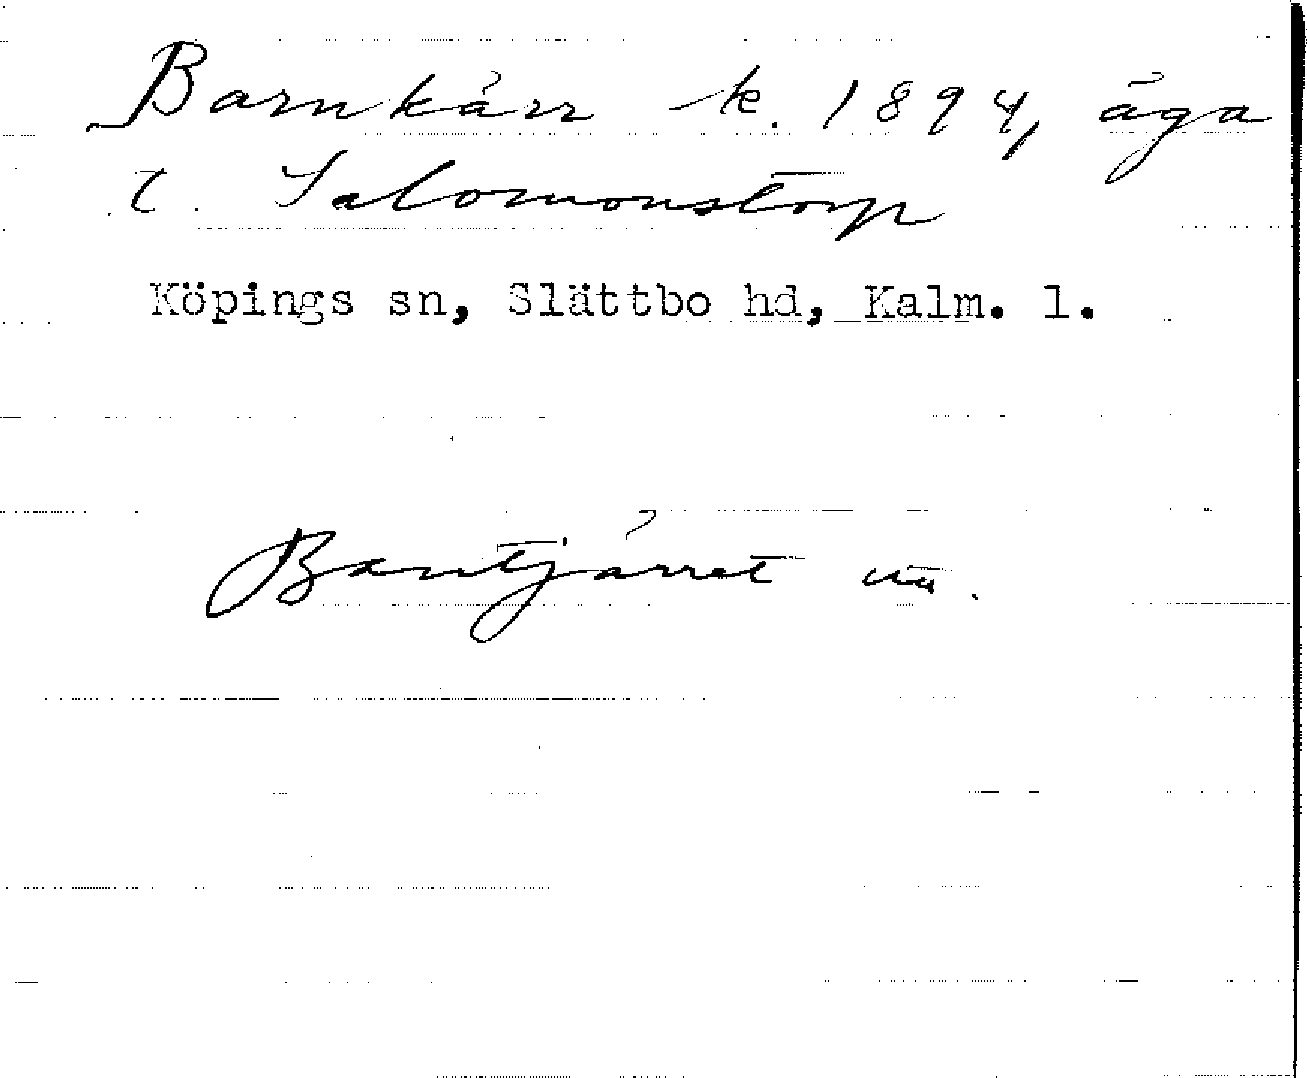 Barnkärr k. 1894, äga
t. Salomonstorp
Köpings sn, Slättbo hd, Kalm. l.
Bantjärret uu.